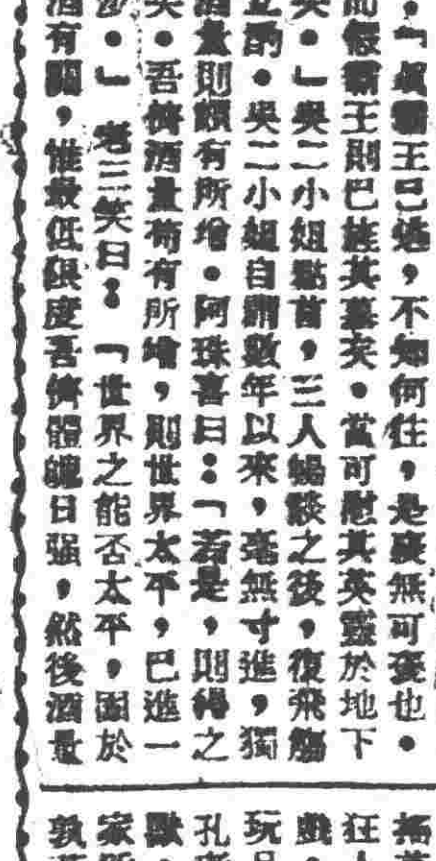 ，「真霸王已逃，不知何往，是褒無可褒也。
而假霸王則已旌其墓矣。當可慰其英靈於地下
矣。」吳二小姐點首，三人暢談之後，復飛觴
酌。吳二小姐自謂數年以來，毫無寸進，獨
酒量則頗有所增。阿珠喜曰：「若是，則得之
矣。吾儕酒量苟有所增，則世界太平，已進一
步。」老三笑曰：「世界之能否太平，固於
酒有關，惟最低限度吾儕體魄日强，然後酒量
狂
戲
玩
孔
獸
家
孰